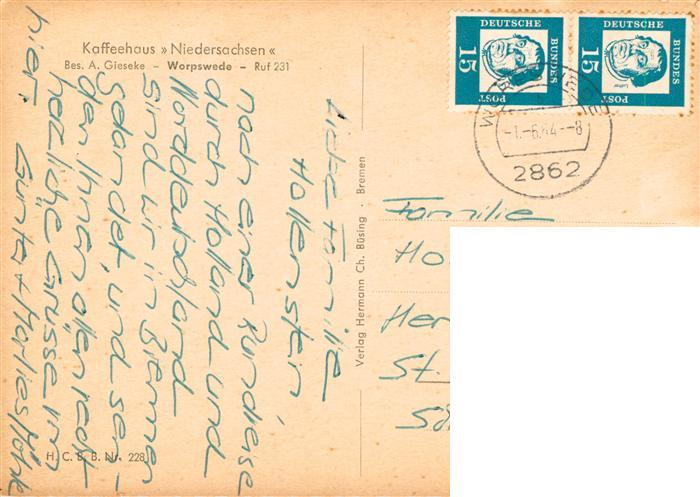 Kaffeehaus » Niedersachsen «
Bes. A. Gieseke – Worpswede – Ruf 231
Liebe Familie
Hollenstein,
nach einer Rundreise
durch Holland und
Norddeutschland
sind wir in Bremen
gelandet, und sen-
den Ihnen allen recht
herzliche Grüsse von
hier.
Günter + Marlies
H. C. B. B. Nr. 228
Verlag Hermann Ch. Büsing · Bremen
DEUTSCHE
BUNDES
POST
15
Luther
DEUTSCHE
BUNDES
POST
15
-1.-6.64.--8
2862
Familie
Ho
Her
St.